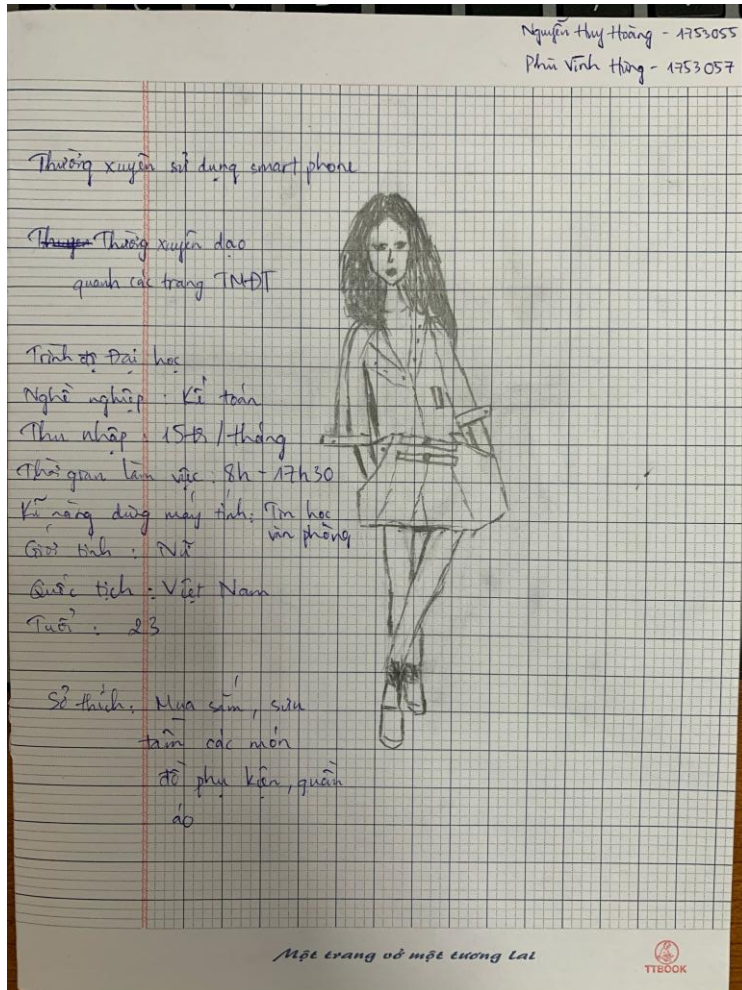 Nguyễn Huy Hoàng - 1753055
Phú Vĩnh Hưng - 1753057
Thường xuyên sử dụng smart phone
Thường xuyên dạo
quanh các trang TMĐT
Trình độ Đại học
Nghề nghiệp : Kế toán
Thu nhập : 15tr / tháng
Thời gian làm việc : 8h - 17h30
Kĩ năng dùng máy tính : Tin học
văn phòng
Giới tính : Nữ
Quốc tịch : Việt Nam
Tuổi : 23
Sở thích : Mua sắm, sưu
tầm các món
đồ phụ kiện, quần
áo
Một trang vở một tương lai
TTBOOK